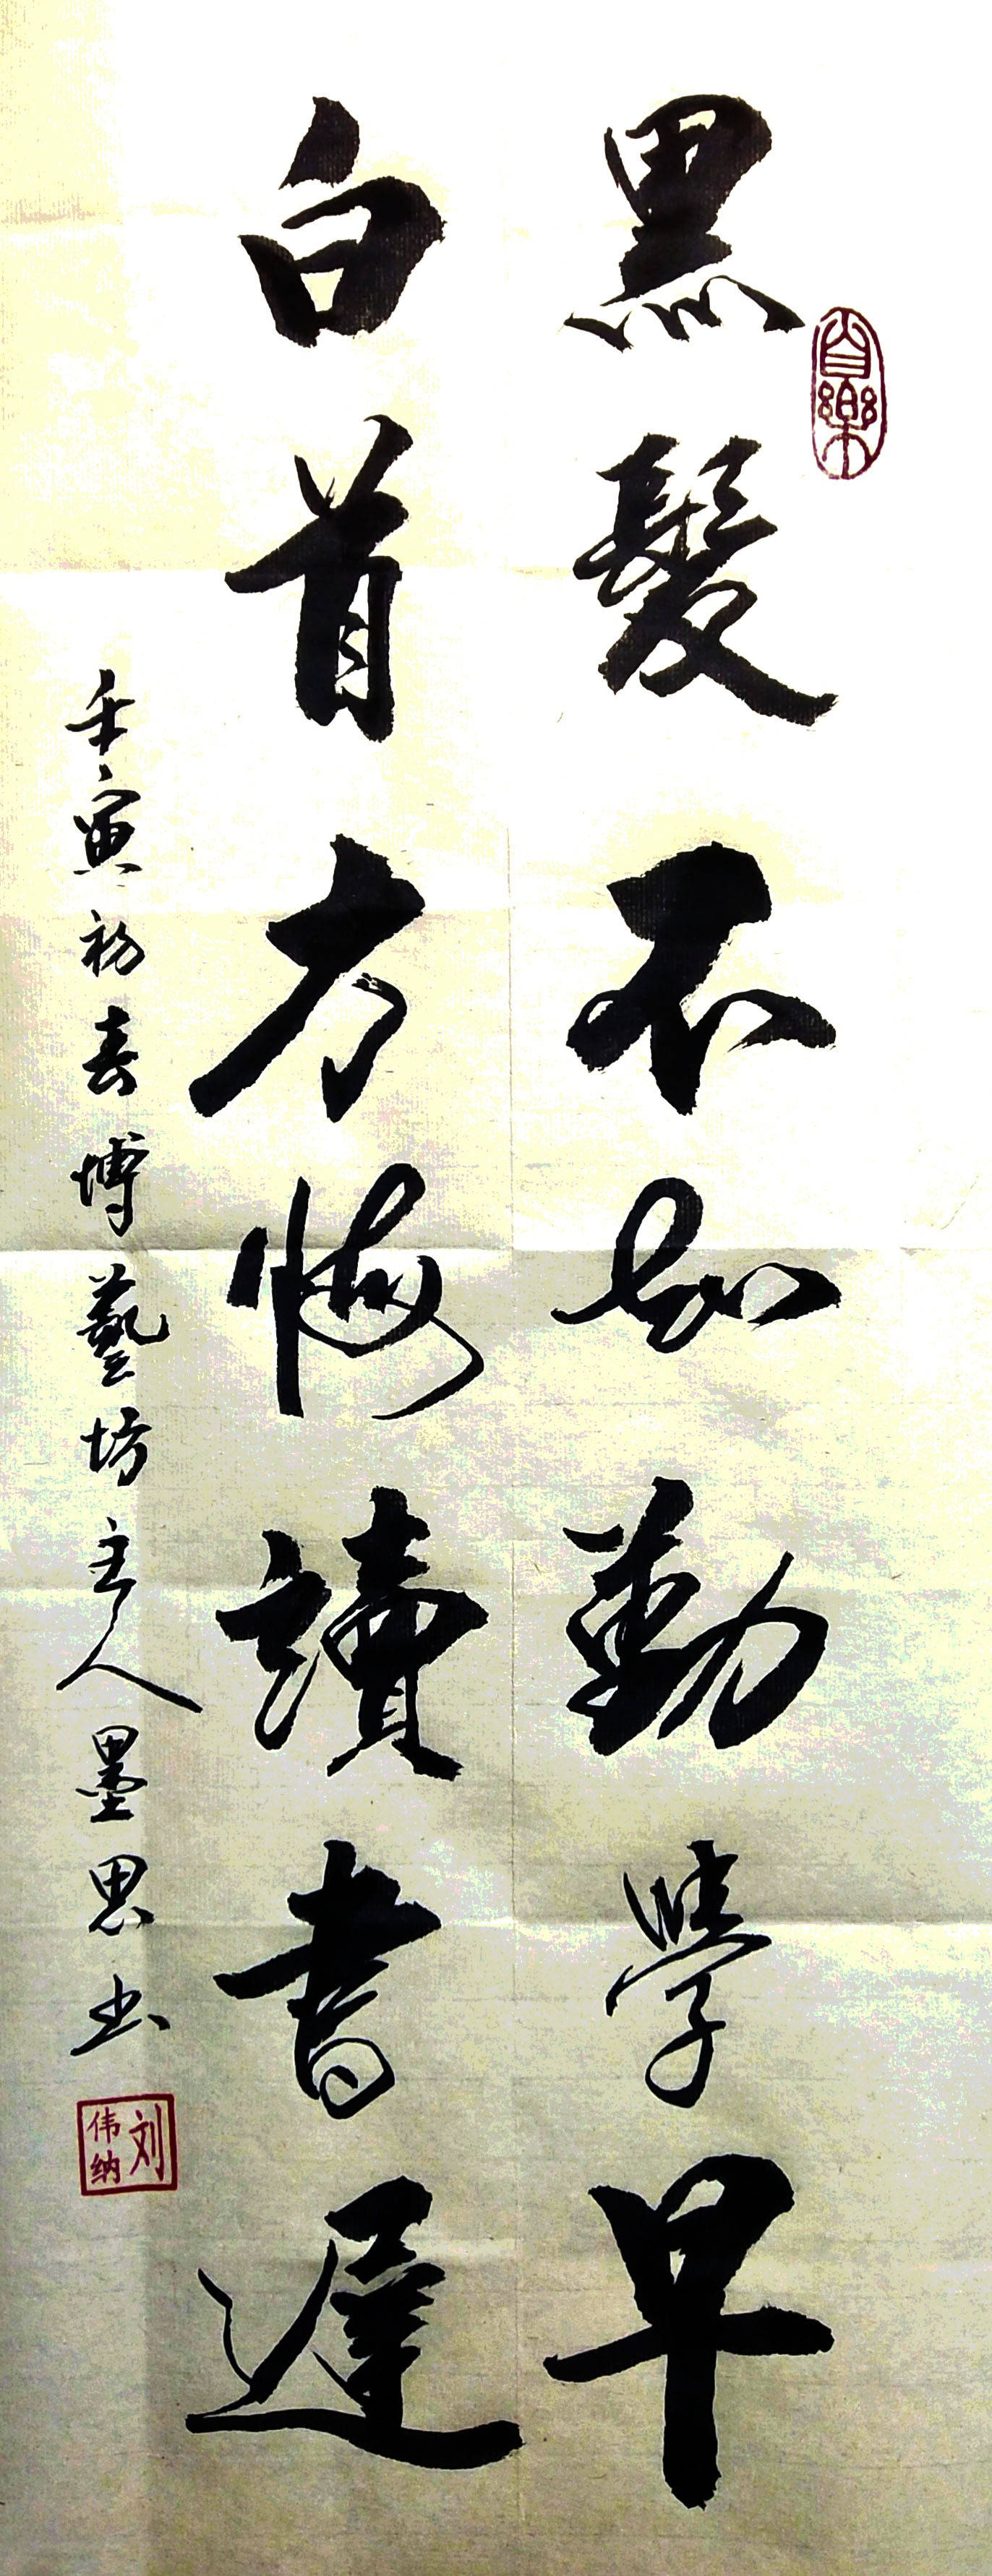 黑髮不知勤學早
白首方悔讀書遲
壬寅初春博藝坊主人墨思书
自樂
刘伟纳